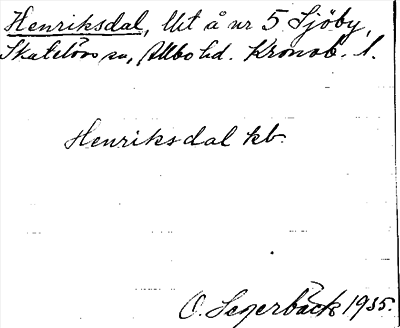 Henriksdal, lht å nr 5 Sjöby,
Skatelövs sn, Allbo hd. Kronob. l.
Henriksdal kb.
O. Segerbäck 1935.